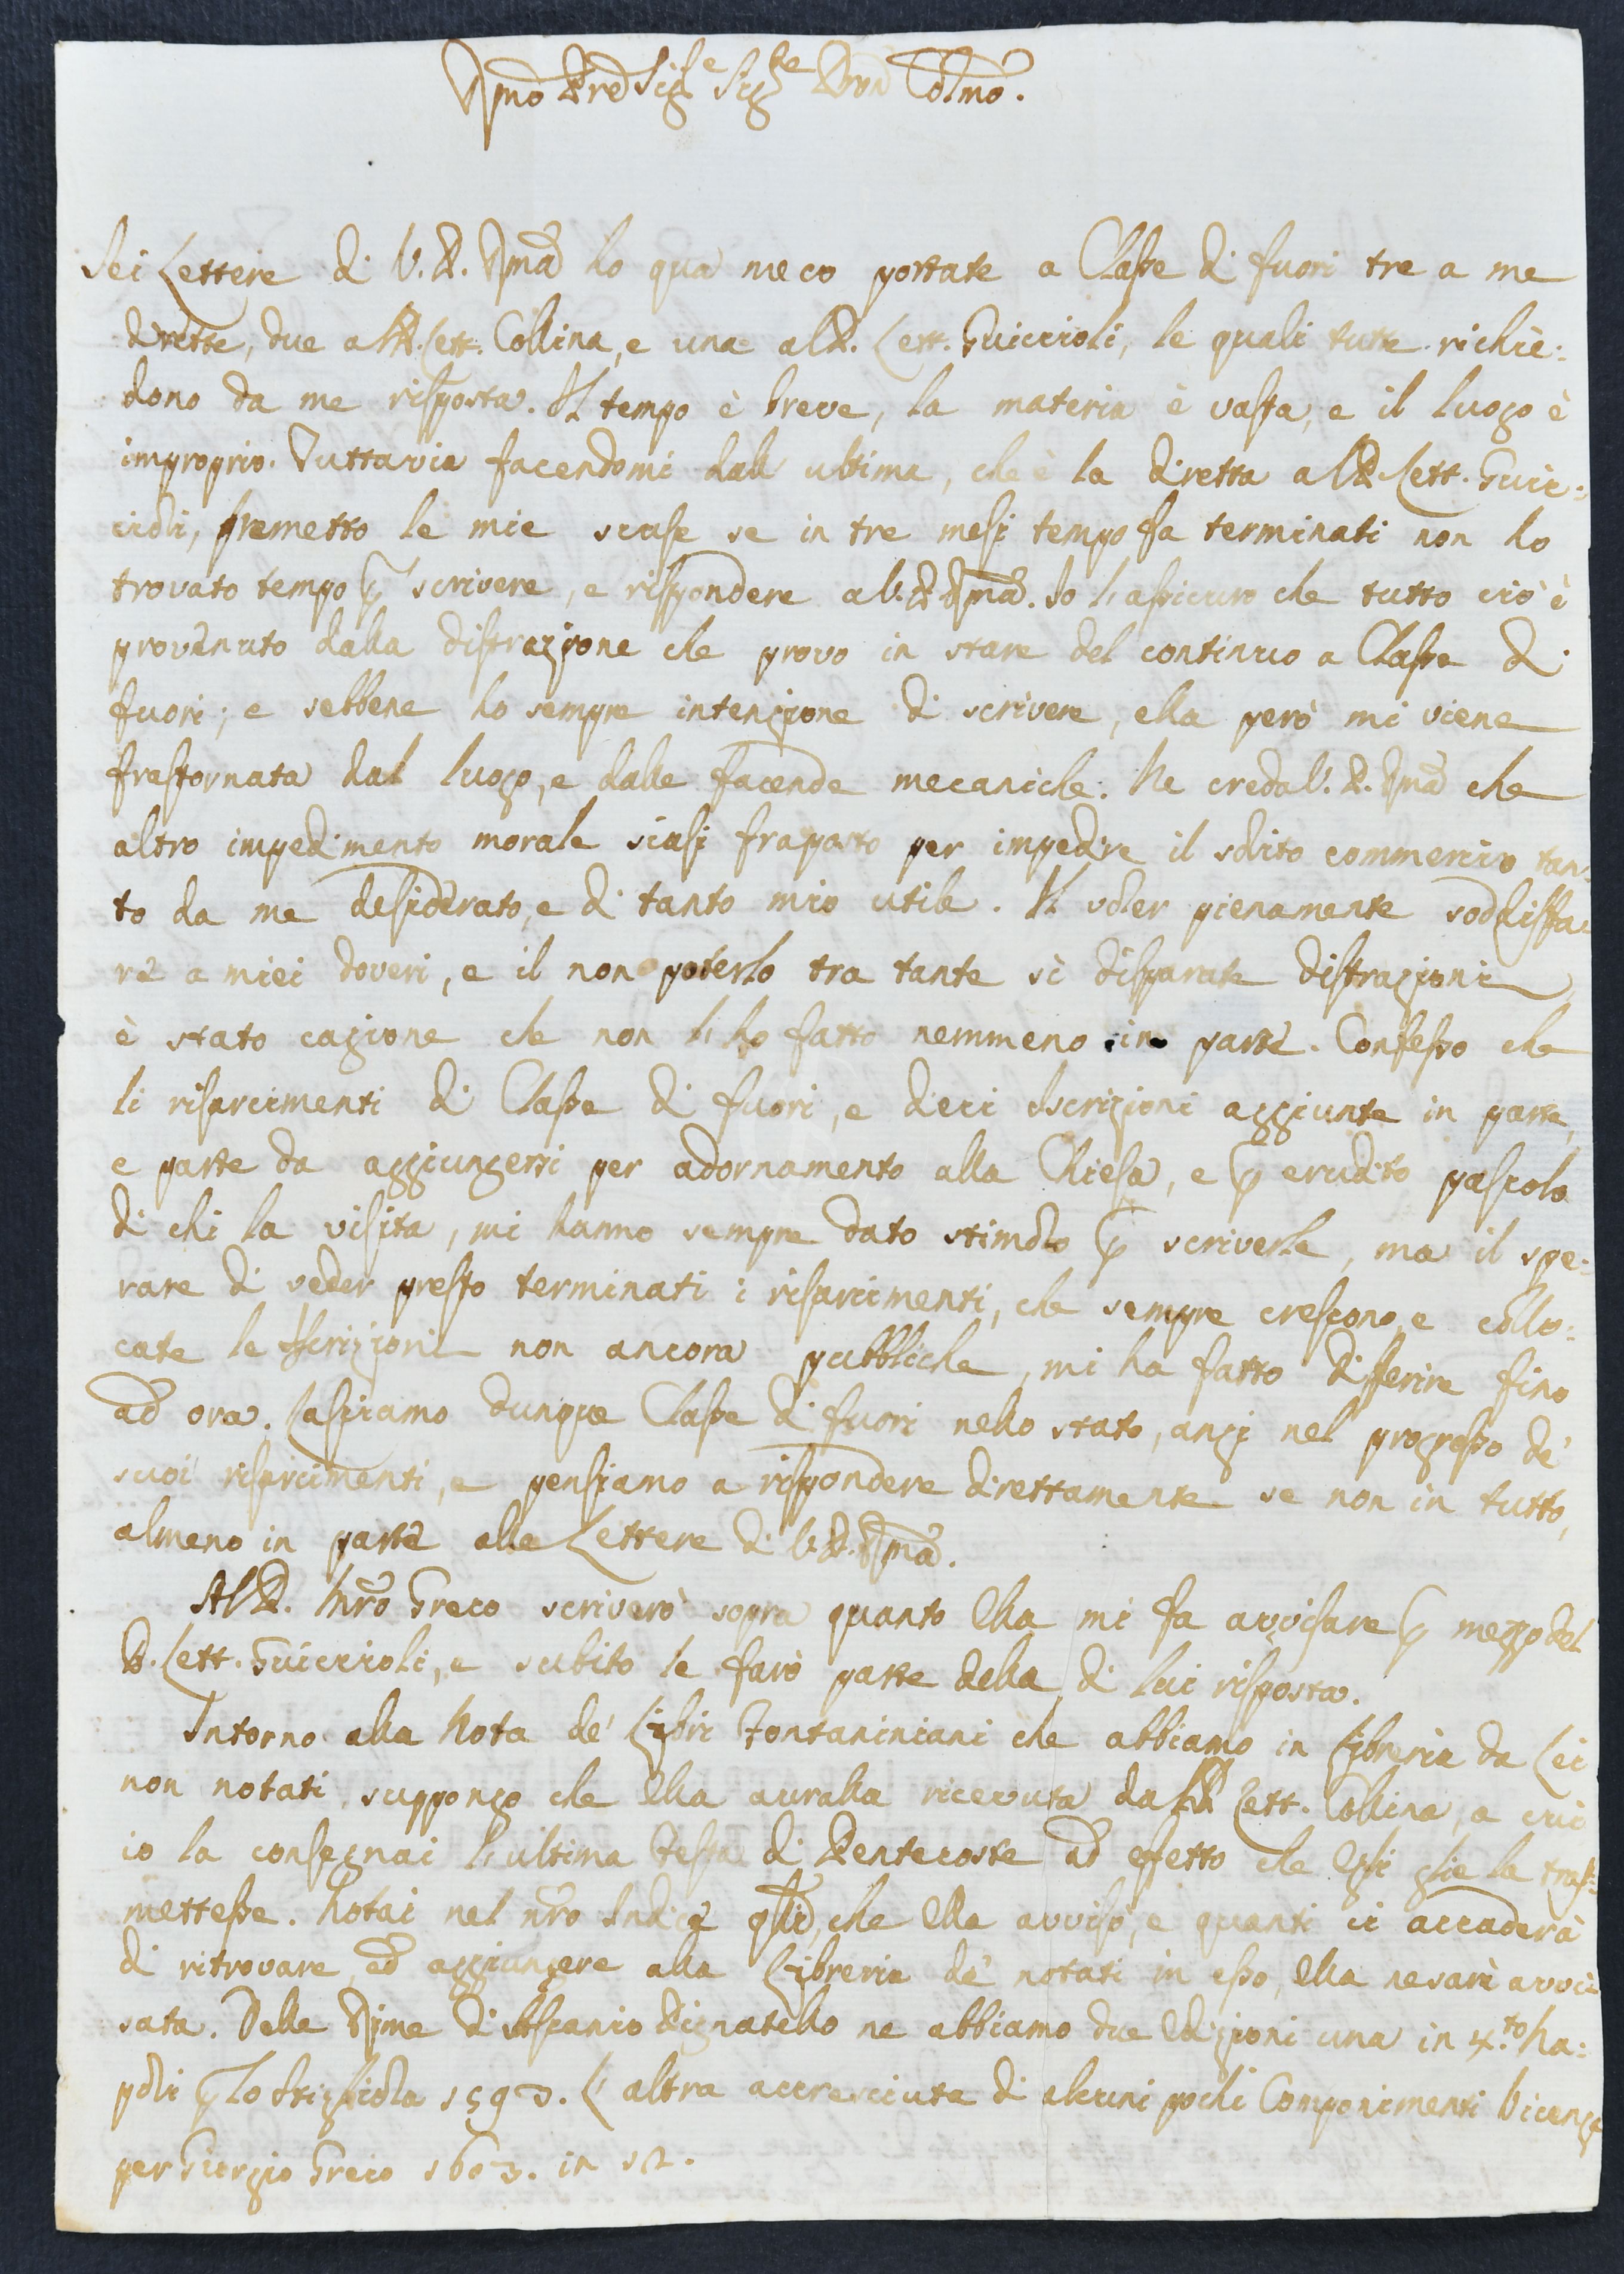 Rmo Pre Sigre Sigre Pron Colmo.
Sei Lettere di V. P. Rma ho qua meco portate a Classe di fuori tre a me
dirette, due al P. Lett. Collina, e una al P. Lett. Guiccioli, le quali tutte richie:
dono da me risposta. Il tempo è breve, la materia è vasta, e il luogo è
improprio. Tuttavia facendomi dall' ultima, che è la diretta al P. Lett. Guic:
cioli, premetto le mie scuse se in tre mesi tempo fa terminati non ho
trovato tempo p scrivere, e rispondere a V. P. Rma. Io l'assicuro che tutto ciò è
provenuto dalla distrazione che provo in stare del continuo a Classe di
fuori; e sebbene ho sempre intenzione di scrivere, ella però mi viene
frastornata dal luogo, e dalle facende mecaniche. Ne creda V. P. Rma che
altro impedimento morale siasi fraposto per impedire il solito commercio tan:
to da me desiderato, e di tanto mio utile. Il voler pienamente soddisfa:
re a miei doveri, e il non poterlo tra tante sì disparate distrazioni
è stato cagione che non l'ho fatto nemmeno in parte. Confesso che
li risarcimenti di Classe di fuori, e dieci Iscrizioni aggiunte in parte,
e parte da aggiungersi per adornamento alla Chiesa, e p erudito pascolo
di chi la visita, mi hanno sempre dato stimolo p scriverle, ma il spe:
rare di veder presto terminati i risarcimenti, che sempre crescono, e collo:
cate le Iscrizioni non ancora pubbliche, mi ha fatto differire fino
ad ora. Lasciamo dunque Classe di fuori nello stato, anzi nel progresso de'
suoi risarcimenti, e pensiamo a rispondere direttamente se non in tutto,
almeno in parte alle Lettere di V. P. Rma.
Al P. Mro Greco scriverò sopra quanto Ella mi fa avvisare p mezzo del
P. Lett. Guiccioli, e subito le farò parte della di lui risposta.
Intorno alla Nota de' Libri Fontaniniani che abbiamo in Libreria da Lei
non notati, suppongo che Ella avralla ricevuta dal P. Lett. Collina, a cui
io la consegnai l'ultima Festa di Pentecoste ad effetto che Egli glie la tras:
mettesse. Notai nel nro Indice qlli, che Ella avvisò, e quanti ci accaderà
di ritrovare, ed aggiungere alla Libreria de' notati in esso, Ella ne sarà avvi:
sata. Delle Rime di Ascanio Pignatello ne abbiamo due Edizioni una in 4.to Na:
poli p lo Stigliola 1593. L'altra accresciuta di alcuni pochi Componimenti Vicenza
per Giorgio Greco 1603. in 12.